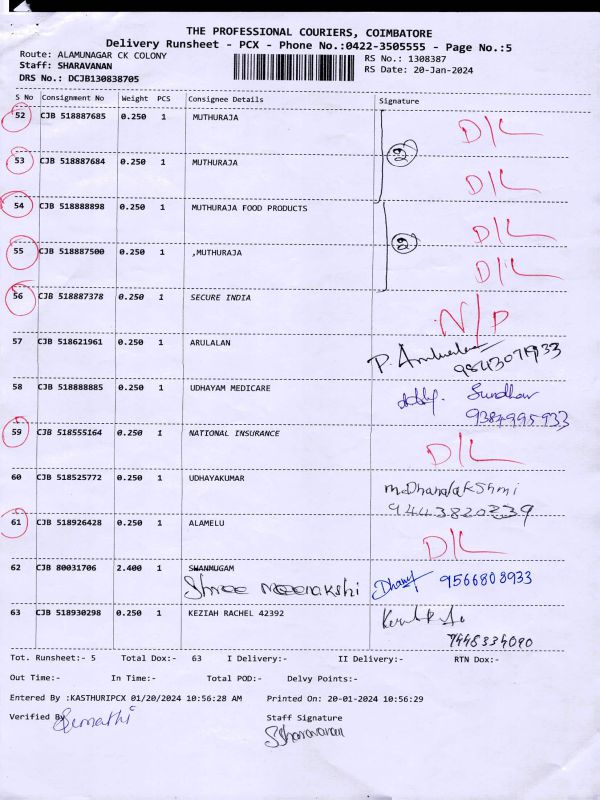 THE PROFESSIONAL COURIERS, COIMBATORE
Delivery Runsheet - PCX - Phone No.:0422-3505555 - Page No.:5
Route: ALAMUNAGAR CK COLONY RS No.: 1308387
Staff: SHARAVANAN RS Date: 20-Jan-2024
DRS No.: DCJB130838705
S No Consignment No Weight PCS Consignee Details Signature
52 CJB 518887685 0.250 1 MUTHURAJA D/L
29
53 CJB 518887684 0.250 1 MUTHURAJA D/L
54 CJB 518888898 0.250 1 MUTHURAJA FOOD PRODUCTS D/L
29
55 CJB 518887500 0.250 1 ,MUTHURAJA D/L
56 CJB 518887378 0.250 1 SECURE INDIA N/P
57 CJB 518621961 0.250 1 ARULALAN
58 CJB 518888885 0.250 1 UDHAYAM MEDICARE Sundhar
9384995933
59 CJB 518555164 0.250 1 NATIONAL INSURANCE D/L
60 CJB 518525772 0.250 1 UDHAYAKUMAR M.Dhanalakshmi
9443820239
61 CJB 518926428 0.250 1 ALAMELU D/L
62 CJB 80031706 2.400 1 SHANMUGAM
Shree Meenakshi 9566808933
63 CJB 518930298 0.250 1 KEZIAH RACHEL 42392
Tot. Runsheet:- 5 Total Dox:- 63 I Delivery:- II Delivery:- RTN Dox:-
Out Time:- In Time:- Total POD:- Delvy Points:-
Entered By :KASTHURIPCX 01/20/2024 10:56:28 AM Printed On: 20-01-2024 10:56:29
Verified By Sumathi Staff Signature
SSharavanan